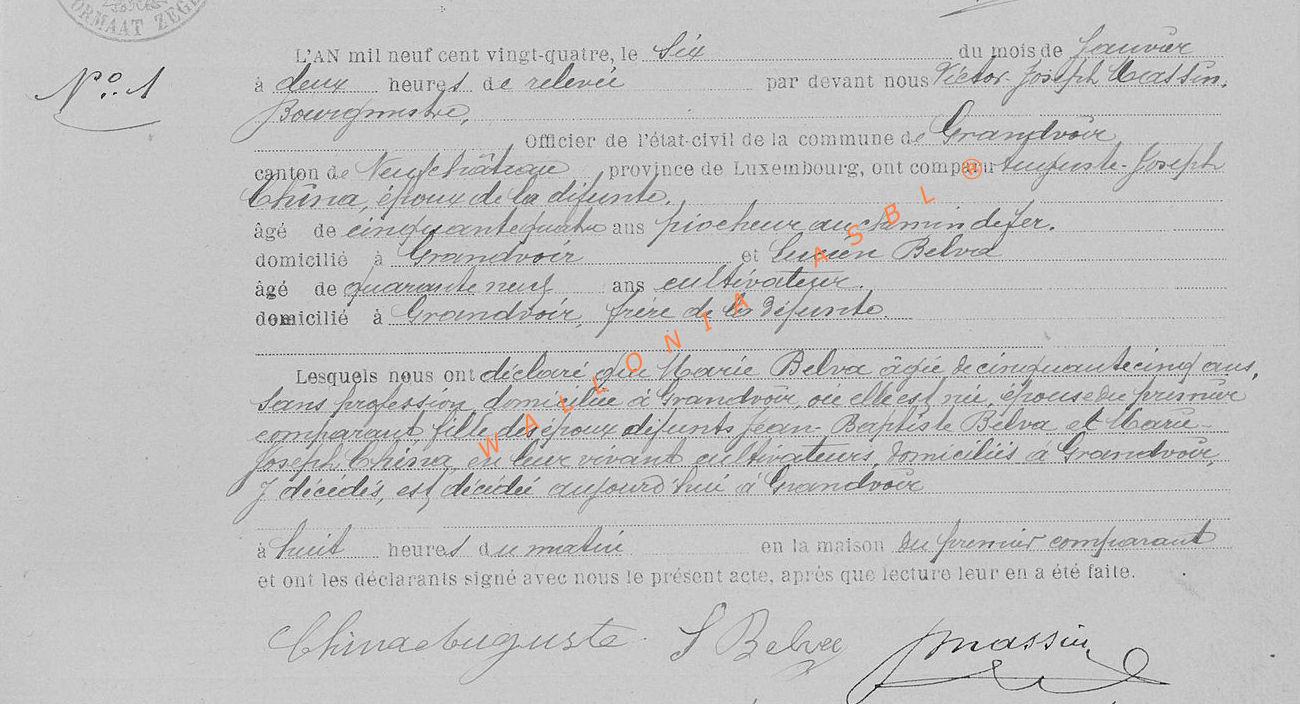 ORMAAT ZEGE
L'AN mil neuf cent vingt-quatre, le six du mois de Janvier
N°. 1
à deux heures de relevée par devant nous Victor-Joseph Massin,
Bourgmestre,
Officier de l'état-civil de la commune de Grandvoir
canton de Neufchâteau province de Luxembourg, ont comparu Auguste-Joseph
China, époux de la défunte.
âgé de cinquante quatre ans piocheur au chemin de fer.
domicilié à Grandvoir et Lucien Belva
âgé de quarante neuf ans cultivateur.
domicilié à Grandvoir, frère de la défunte.
Lesquels nous ont déclaré que Marie Belva âgée de cinquante cinq ans,
sans profession, domiciliée à Grandvoir, où elle est née, épouse du premier
comparant, fille des époux défunts Jean-Baptiste Belva et Marie-
Joseph China, en leur vivant cultivateurs, domiciliés à Grandvoir,
y décédés, est décédée aujourd'hui à Grandvoir
à huit heures du matin en la maison du premier comparant
et ont les déclarants signé avec nous le présent acte, après que lecture leur en a été faite.
China Auguste. L Belva Massin
WALLONIA ASBL ®